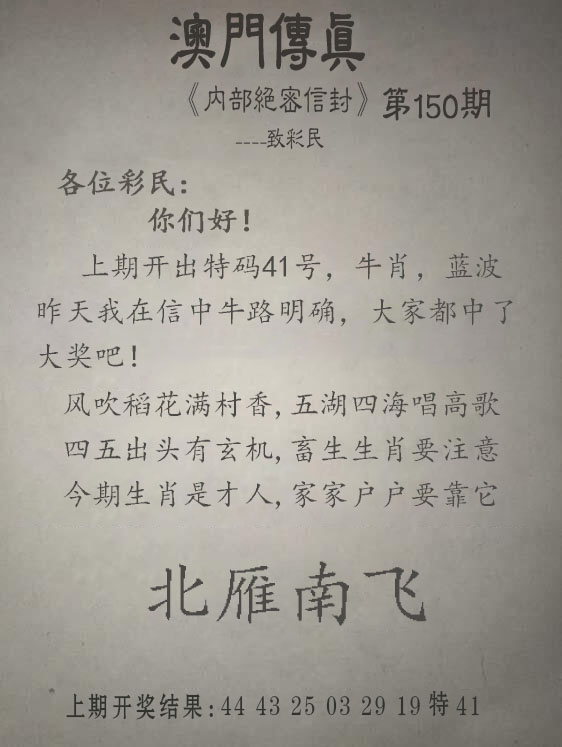 澳門傳真
《内部絕密信封》第150期
----致彩民
各位彩民：
你们好！
上期开出特码41号，牛肖，蓝波
昨天我在信中牛路明确，大家都中了
大奖吧！
风吹稻花满村香,五湖四海唱高歌
四五出头有玄机,畜生生肖要注意
今期生肖是才人,家家户户要靠它
北雁南飞
上期开奖结果:44 43 25 03 29 19特41